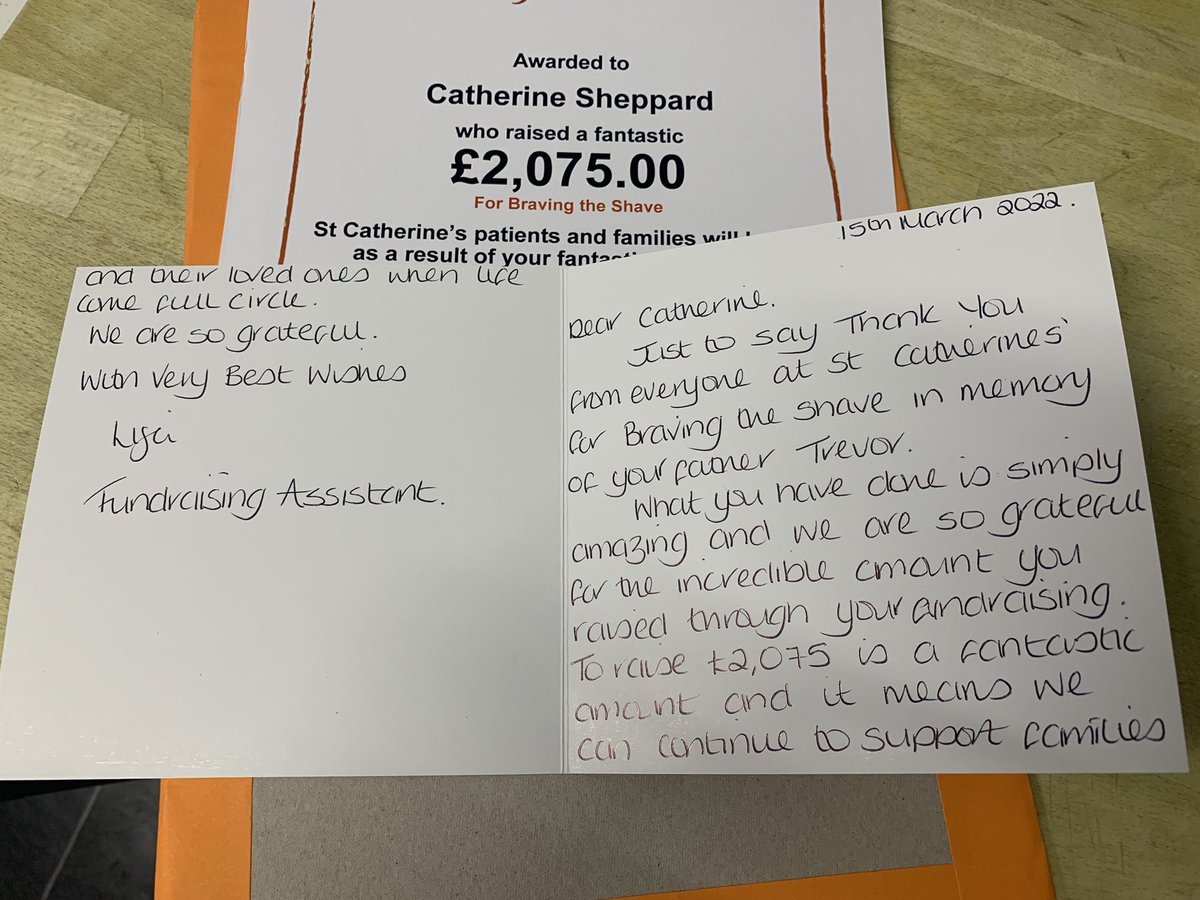 Awarded to
Catherine Sheppard
who raised a fantastic
£2,075.00
For Braving the Shave
St Catherine's patients and families will
as a result of your
15th March 2022.
Dear Catherine.
Just to say Thank You
from everyone at St Catherines'
for Braving the Shave in memory
of your father Trevor.
What you have done is simply
amazing and we are so grateful
for the incredible amount you
raised through your fundraising.
To raise £2,075 is a fantastic
amount and it means we
can continue to support families
and their loved ones when life
come full circle.
We are so grateful.
With Very Best Wishes
Fundraising Assistant.